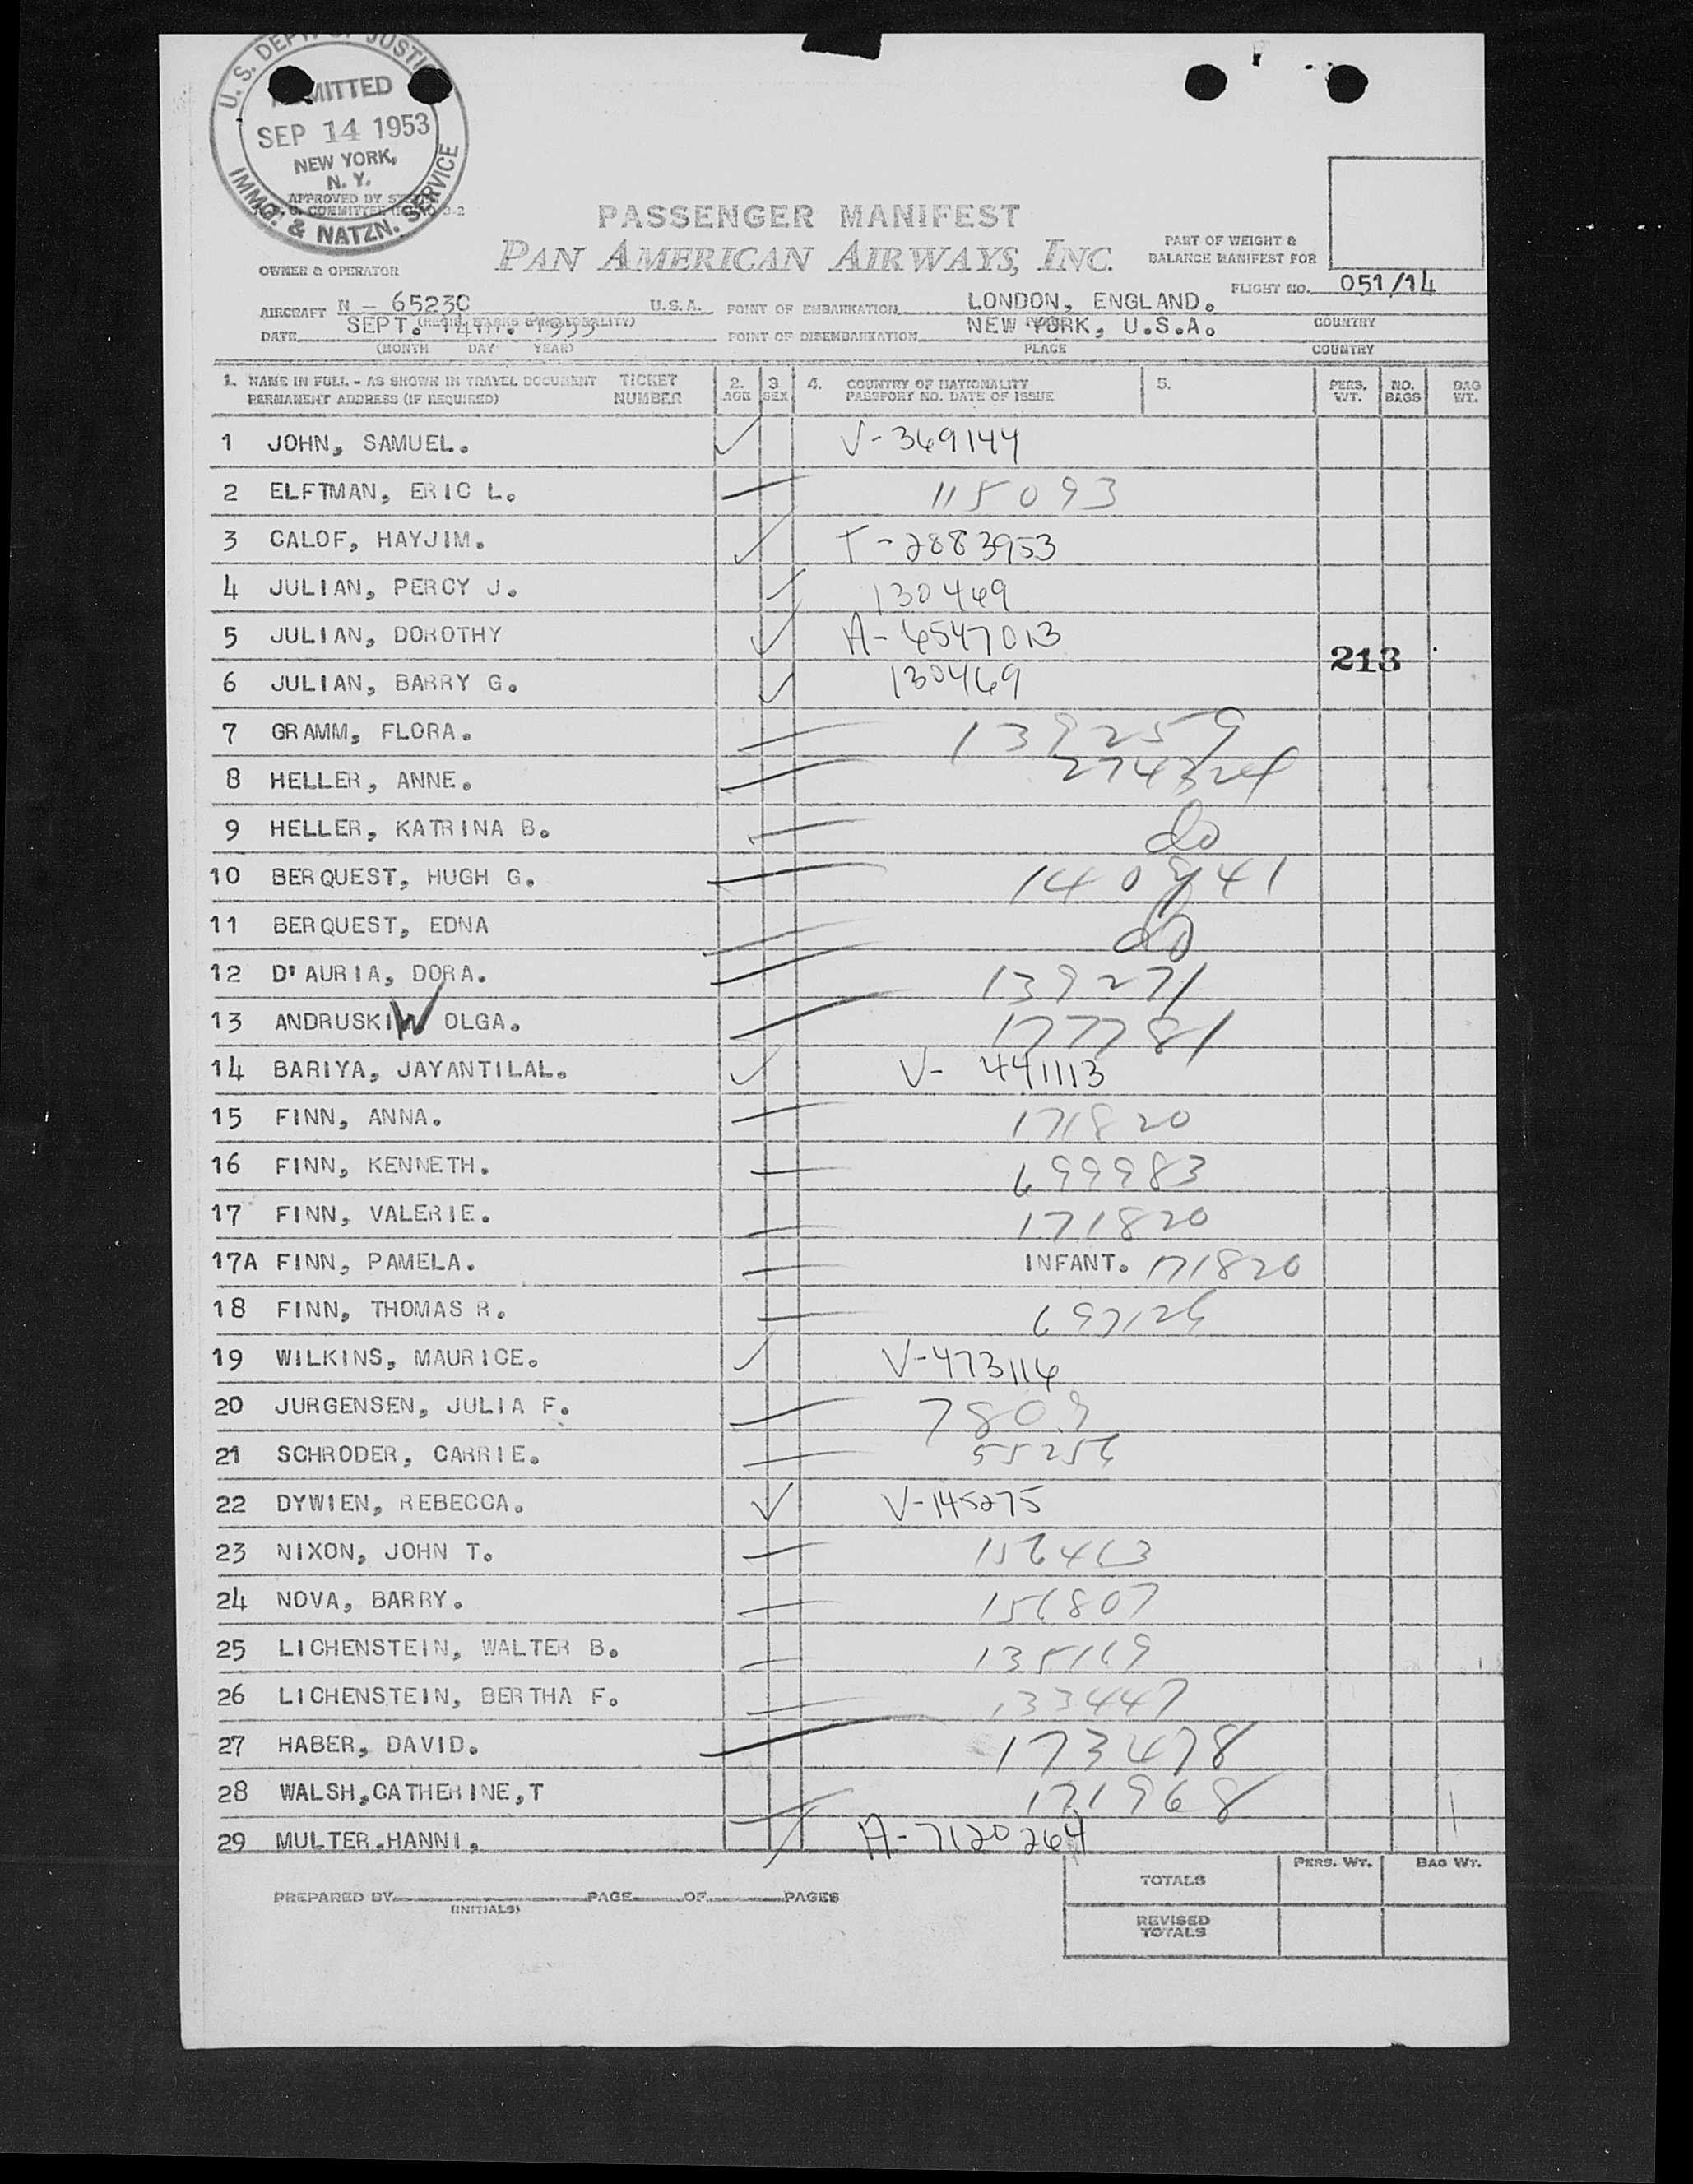 U. S. DEPT. OF JUSTICE
ADMITTED
SEP 14 1953
NEW YORK,
N. Y.
IMMG. & NATZN. SERVICE
APPROVED BY
COMMITTEE
PASSENGER MANIFEST
PAN AMERICAN AIRWAYS, INC.
PART OF WEIGHT &
BALANCE MANIFEST FOR
OWNER & OPERATOR
FLIGHT NO. 051/14
AIRCRAFT N - 65230 U.S.A. POINT OF EMBARKATION LONDON, ENGLAND.
DATE SEPT. 14TH. 1953 POINT OF DISEMBARKATION NEW YORK, U.S.A. COUNTRY
(MONTH DAY YEAR) PLACE COUNTRY
1. NAME IN FULL - AS SHOWN IN TRAVEL DOCUMENT TICKET 2. 3. 4. COUNTRY OF NATIONALITY 5. PERS. NO. BAG
PERMANENT ADDRESS (IF REQUIRED) NUMBER AGE SEX PASSPORT NO. DATE OF ISSUE WT. BAGS WT.
1 JOHN, SAMUEL. V-369144
2 ELFTMAN, ERIC L. 115093
3 CALOF, HAYJIM. T-2883953
4 JULIAN, PERCY J. 130469
5 JULIAN, DOROTHY A-6547013
213
6 JULIAN, BARRY G. 130469
7 GRAMM, FLORA. 139259
8 HELLER, ANNE. 274324
9 HELLER, KATRINA B. do
10 BERQUEST, HUGH G. 140941
11 BERQUEST, EDNA do
12 D'AURIA, DORA. 139271
13 ANDRUSKIW OLGA. 177781
14 BARIYA, JAYANTILAL. V- 441113
15 FINN, ANNA. 171820
16 FINN, KENNETH. 699983
17 FINN, VALERIE. 171820
17A FINN, PAMELA. INFANT. 171820
18 FINN, THOMAS R. 697126
19 WILKINS, MAURICE. V-473116
20 JURGENSEN, JULIA F. 7809
21 SCHRODER, CARRIE. 55256
22 DYWIEN, REBECCA. V-145275
23 NIXON, JOHN T. 156463
24 NOVA, BARRY. 156807
25 LICHENSTEIN, WALTER B. 135169
26 LICHENSTEIN, BERTHA F. 133447
27 HABER, DAVID. 173478
28 WALSH,CATHERINE,T 171968
29 MULTER,HANNI, A-7120264
PERS. WT. BAG WT.
TOTALS
PREPARED BY PAGE OF PAGES
(INITIALS)
REVISED
TOTALS